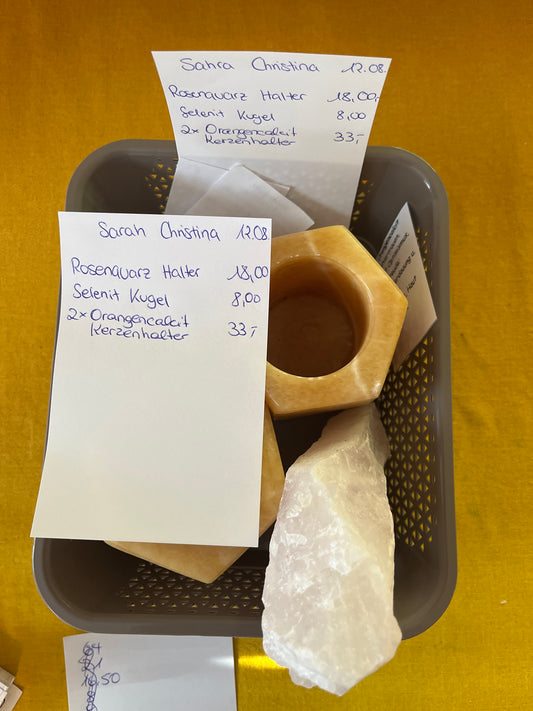 Sahra Christina 12.08.
Rosenquarz Halter 18,00,
Selenit Kugel 8,00
2x Orangencalcit
Kerzenhalter 33,-
Sarah Christina 12.08.
Rosenquarz Halter 18,00
Selenit Kugel 8,00
2x Orangencalcit
Kerzenhalter 33,-
10,50